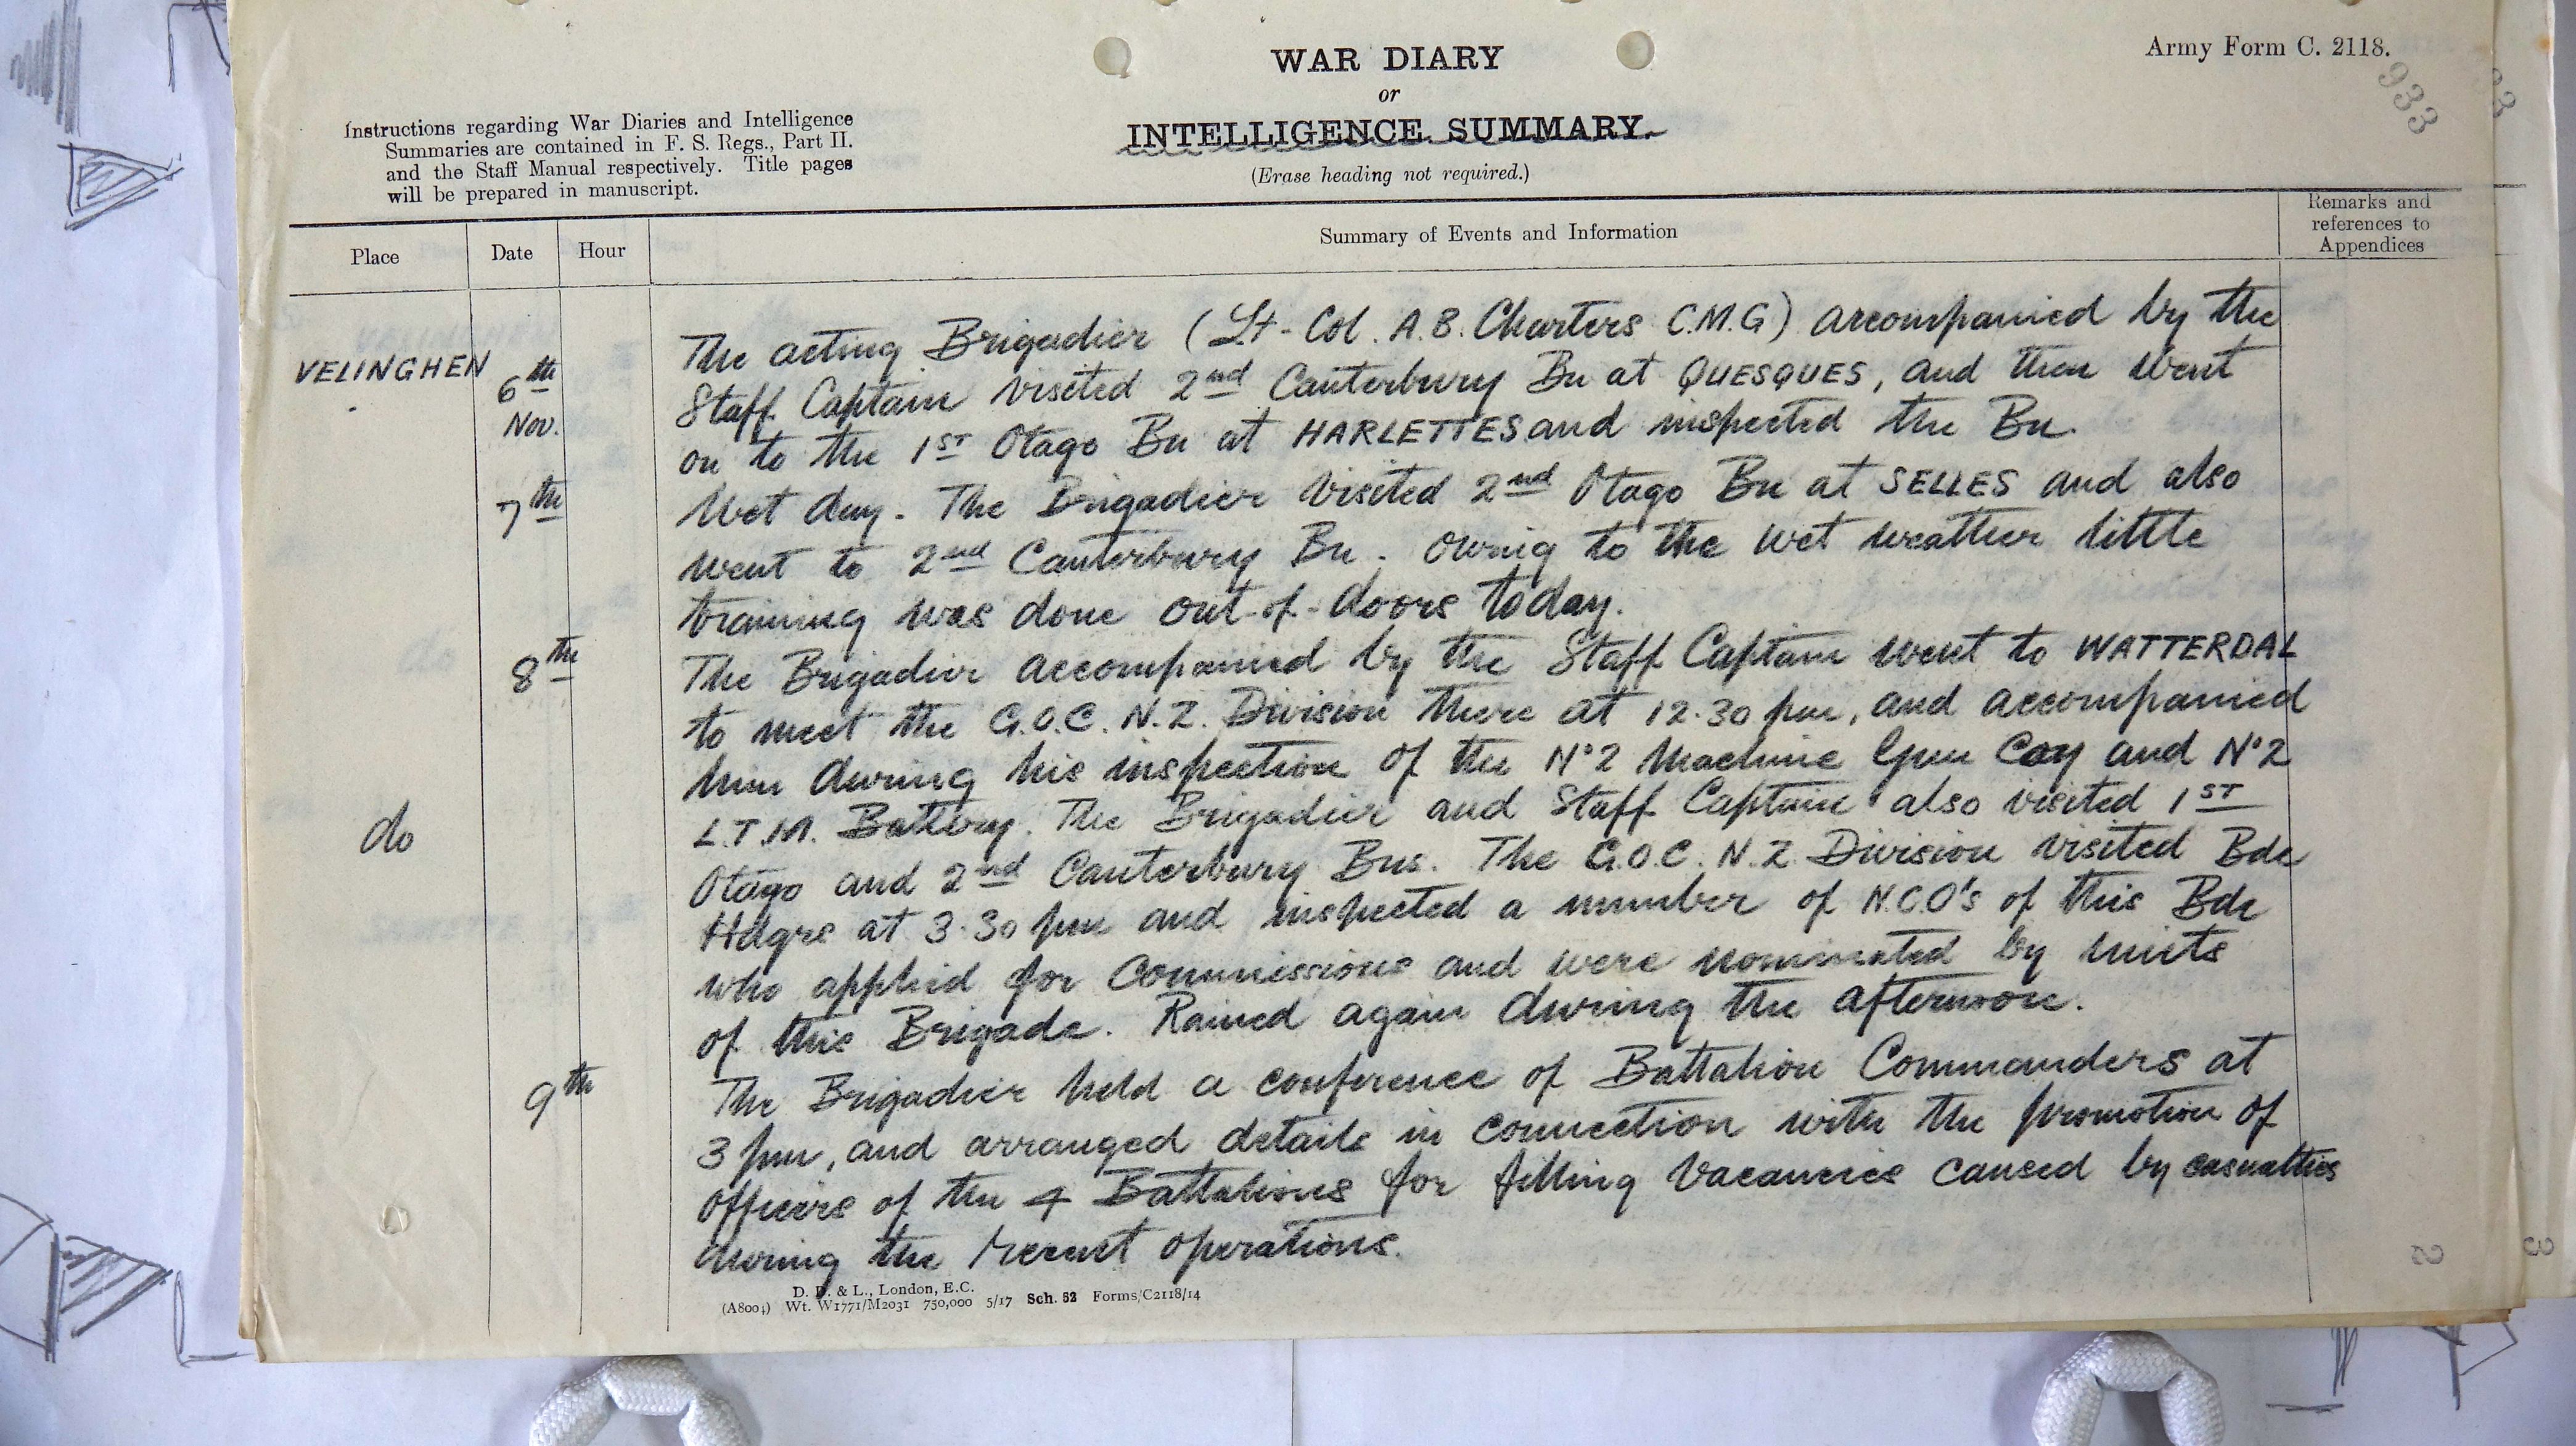 WAR DIARY
or
INTELLIGENCE SUMMARY.
(Erase heading not required.)
Army Form C. 2118.
933
Instructions regarding War Diaries and Intelligence
Summaries are contained in F. S. Regs., Part II.
and the Staff Manual respectively. Title pages
will be prepared in manuscript.
Place
Date
Hour
Summary of Events and Information
Remarks and
references to
Appendices
VELINGHEN
6th
Nov.
The acting Brigadier (Lt-Col. A.B. Charters C.M.G) accompanied by the
Staff Captain visited 2nd Canterbury Bn at QUESQUES, and then went
on to the 1ST Otago Bn at HARLETTES and inspected the Bn.
7th
Wet day. The Brigadier visited 2nd Otago Bn at SELLES and also
went to 2nd Canterbury Bn. Owing to the wet weather little
training was done out-of-doors today.
8th
The Brigadier accompanied by the Staff Captain went to WATTERDAL
to meet the G.O.C. N.Z. Division there at 12.30 pm, and accompanied
him during his inspection of the No 2 Machine Gun Coy and No 2
do
L.T.M. Battery. The Brigadier and Staff Captain also visited 1ST
Otago and 2nd Canterbury Bns. The G.O.C. N.Z Division visited Bde
Hdqrs at 3.30 pm and inspected a number of N.C.O's of this Bde
who applied for Commissions and were nominated by units
of this Brigade. Rained again during the afternoon.
9th
The Brigadier held a conference of Battalion Commanders at
3 pm, and arranged details in connection with the promotion of
officers of the 4 Battalions for filling vacancies caused by casualties
during the recent operations.
D. D. & L., London, E.C.
(A8004) Wt. W1771/M2031 750,000 5/17 Sch. 52 Forms/C2118/14